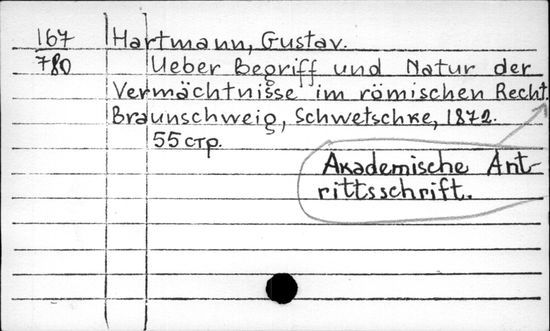 167 Hartmann, Gustav.
780 Ueber Begriff und Natur der
Vermächtnisse im römischen Recht
Braunschweig, Schwetschke, 1872.
55 стр.
Akademische Ant-
rittsschrift.